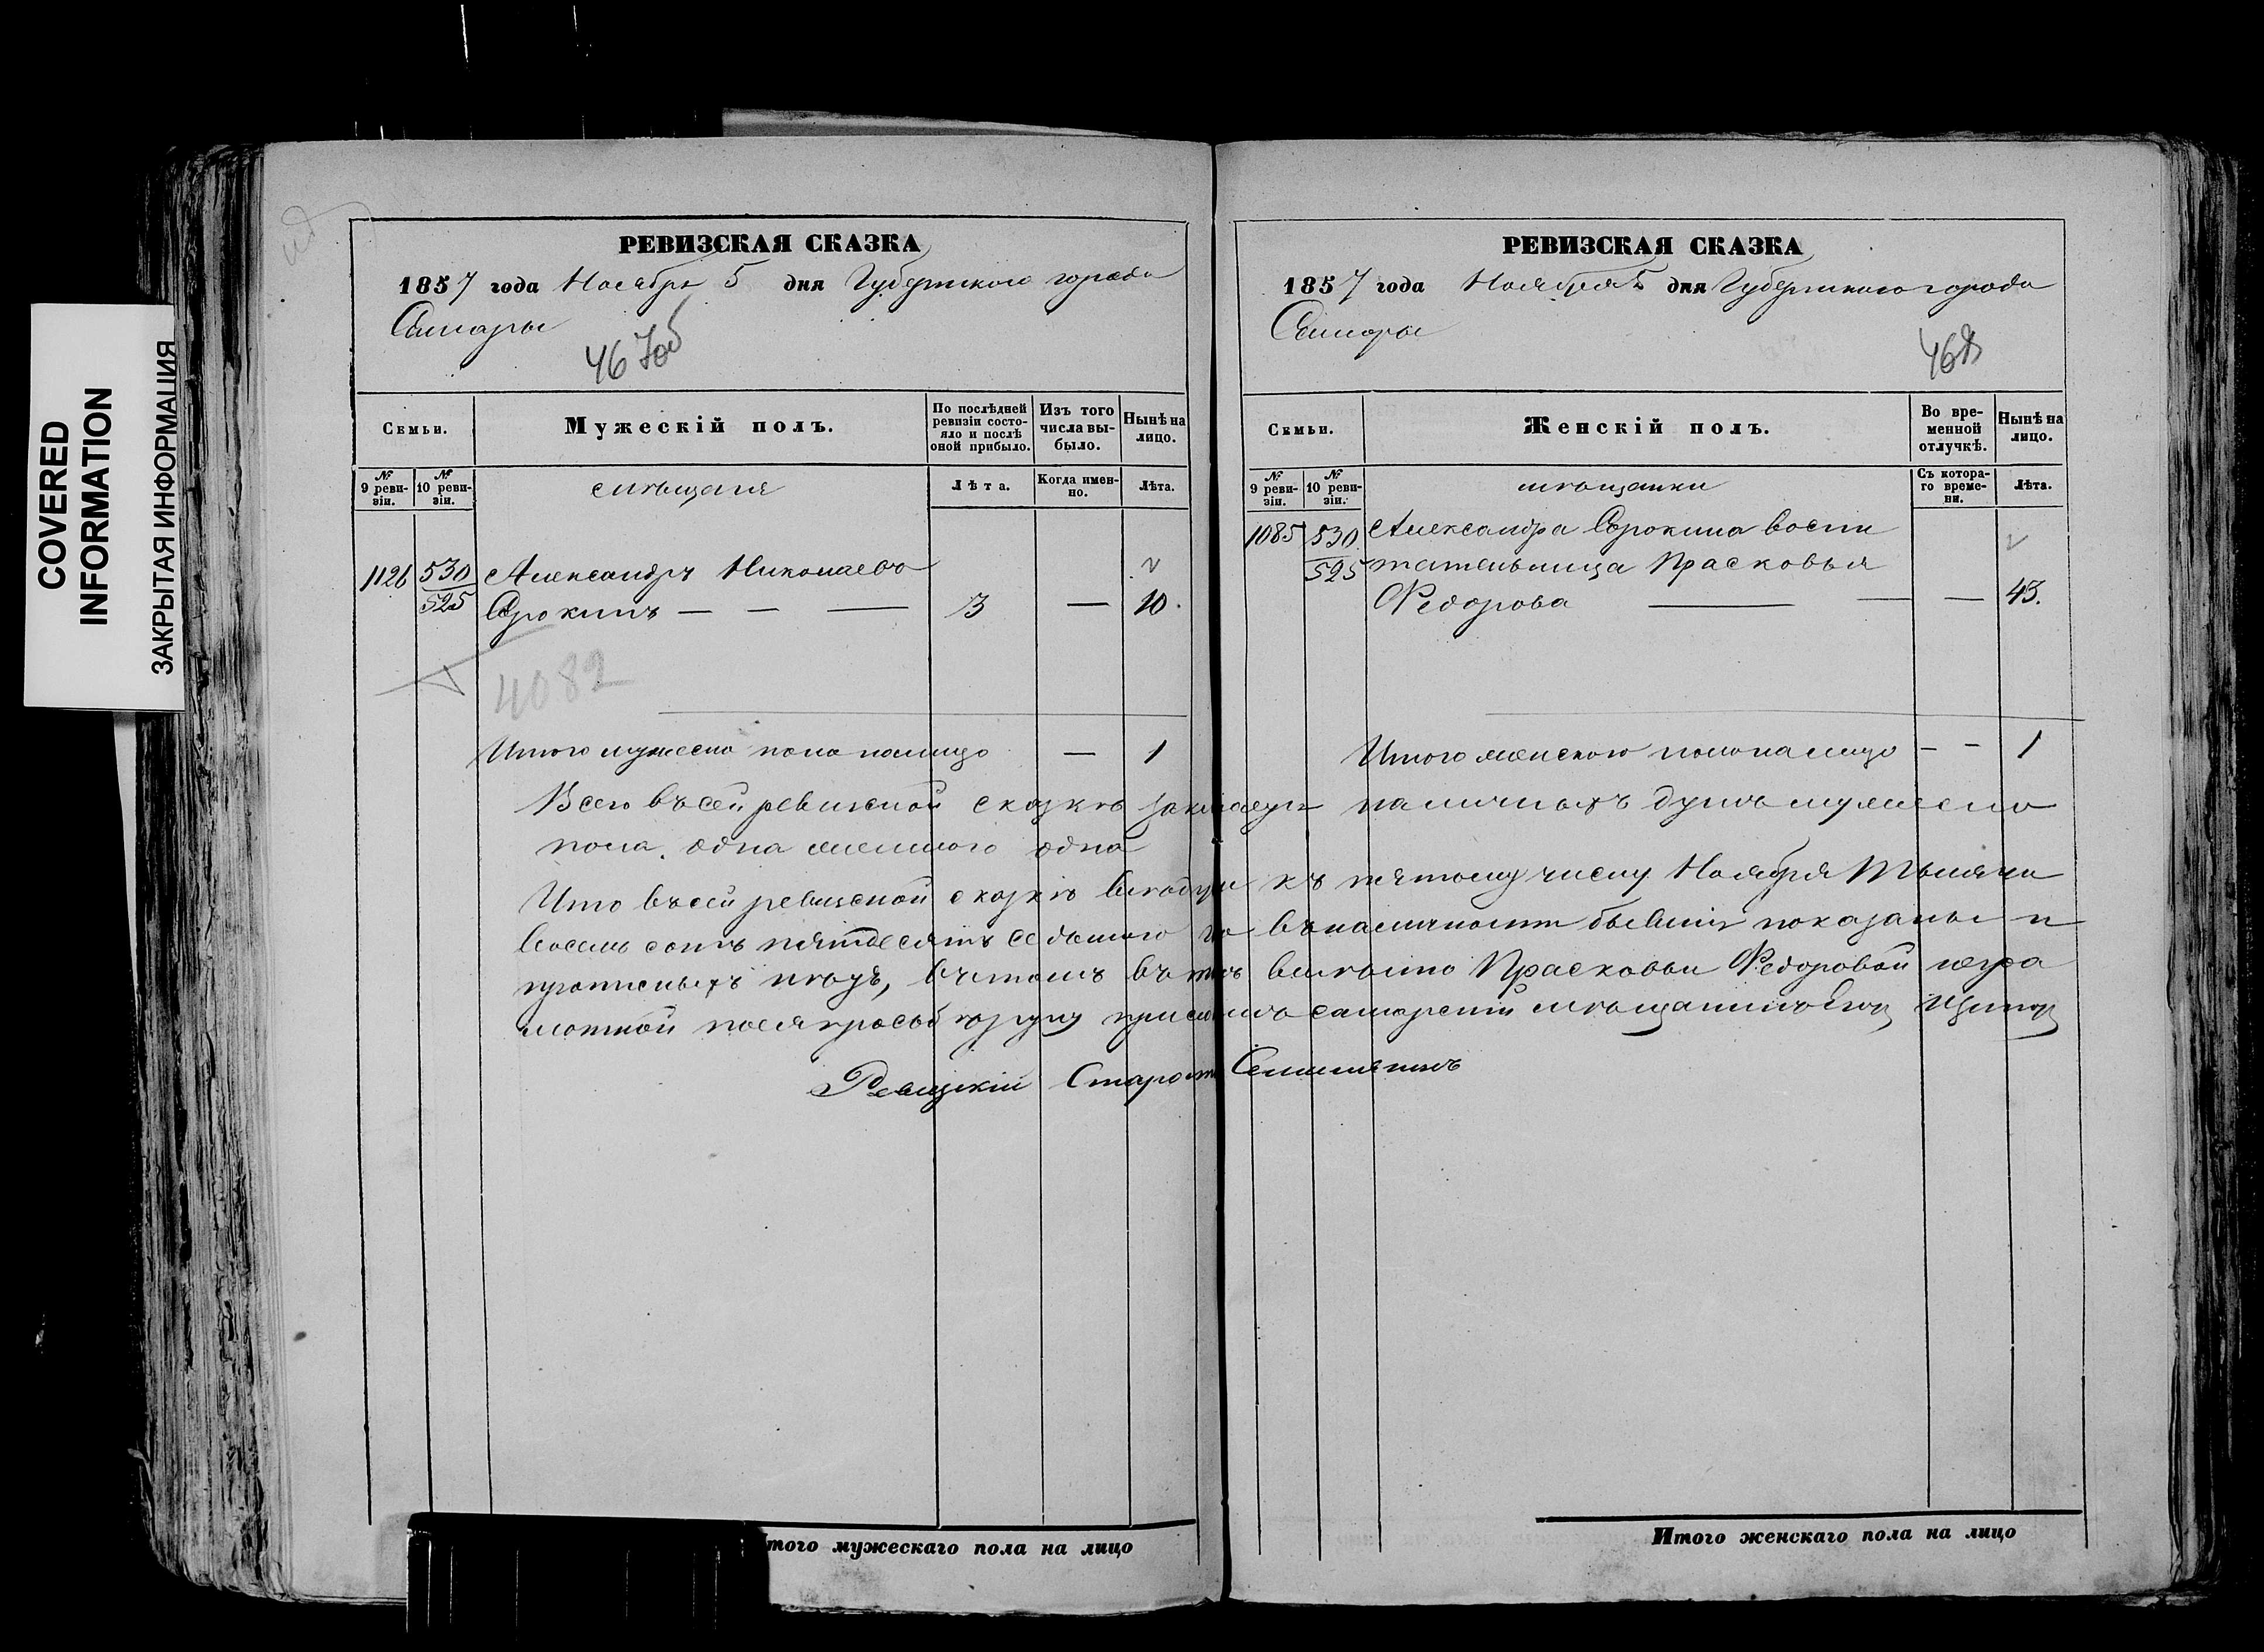 COVERED
INFORMATION
ЗАКРЫТАЯ ИНФОРМАЦИЯ
РЕВИЗСКАЯ СКАЗКА
1857 года Ноября 5 дня Губернского города
Самары
467об
Семьи.
Мужескій полъ.
По послѣдней ревизіи состояло и послѣ оной прибыло.
Изъ того числа выбыло.
Нынѣ на лицо.
№ 9 ревизіи.
№ 10 ревизіи.
мѣщане
Лѣта.
Когда именно.
Лѣта.
1126 530 Александръ Николаевъ
525 Сорокинъ — — — 3 — 10.
4082
Итого мужеска пола налицо — 1
РЕВИЗСКАЯ СКАЗКА
1857 года Ноября 5 дня Губернского города
Самары
468
Семьи.
Женскій полъ.
Во временной отлучкѣ.
Нынѣ на лицо.
№ 9 ревизіи.
№ 10 ревизіи.
мѣщанки
Съ котораго времени.
Лѣта.
1085 530 Александра Сорокина воспи
525 тательница Прасковья
Федорова — — — 43.
Итого женского пола на лицо — — 1
Всего въ сей ревизской сказкѣ наличныхъ душъ мужеска
пола одна женского одна
Что въ сей ревизской сказкѣ къ пятому числу Ноября Тысяча
восемь сотъ пятдесятъ седьмого въ наличности бывшія показаны и
прописныхъ нѣтъ, въ томъ вмѣсто Прасковьи Федоровой неграмотной
по ея прозьбѣ руку самарскій мѣщанинъ
Ревизскій Староста
Итого мужескаго пола на лицо
Итого женскаго пола на лицо